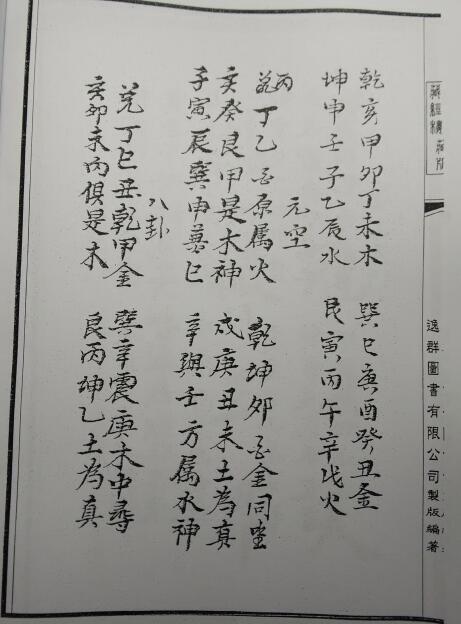 乾亥甲卯丁未木　巽巳庚酉癸丑金
坤申壬子乙辰水　艮寅丙午辛戌火
元空
丙丁乙酉原属火　乾坤卯酉金同坐
亥癸艮甲是木神　戌庚丑未土為真
子寅辰巽申兼巳　辛與壬方属水神
八卦
兌丁巳丑乾甲金　巽辛震庚木中尋
亥卯未丙俱是木　艮丙坤乙土為真
逸群圖書有限公司製版編著